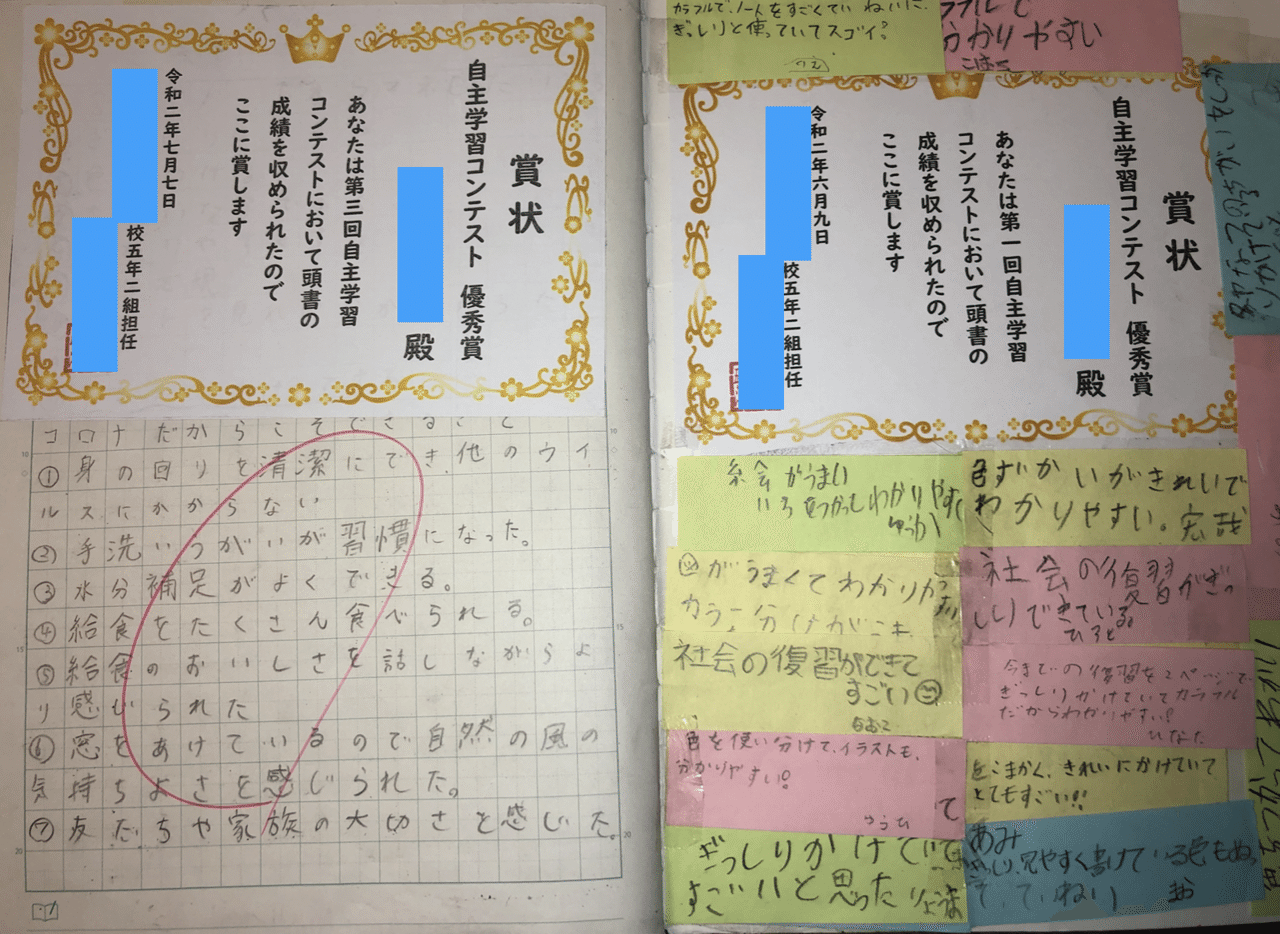 賞状
自主学習コンテスト 優秀賞
殿
あなたは第三回自主学習
コンテストにおいて頭書の
成績を収められたので
ここに賞します
令和二年七月七日
校五年二組担任
コロナだからこそできること
①身の回りを清潔にでき、他のウイ
ルスにかからない
②手洗いうがいが習慣になった。
③水分補足がよくできる。
④給食をたくさん食べられる。
⑤給食のおいしさを話しながらよ
り感じられた
⑥窓をあけているので自然の風の
気持ちよさを感じられた。
⑦友だちや家族の大切さを感じた。
カラフルで、ノートをすごくていねいに、
ぎっしりと使っていてスゴイ!
のえ
ラフルで
わかりやすい
こはく
賞状
自主学習コンテスト 優秀賞
殿
あなたは第一回自主学習
コンテストにおいて頭書の
成績を収められたので
ここに賞します
令和二年六月九日
校五年二組担任
絵がうまい
いろをつかっしわかりやす
色ずかいがきれいで
わかりやすい。宏哉
がうまくてわかりや
カラー分けが
社会の復習がぎっ
しりできている。
ひろと
社会の復習ができて
すごい
なおこ
今までの復習を2ページで、
ぎっしりかけていてカララフル
だからわかりやすい!
ひなた
色を使い分けて、イラストも、
分かりやすい!
て
こまかく、きれいにかけていて
とてもすごい!!
ぎっしりかけていて
すごいいと思った
あみ
見やすく書けている色もぬっ
ていねい